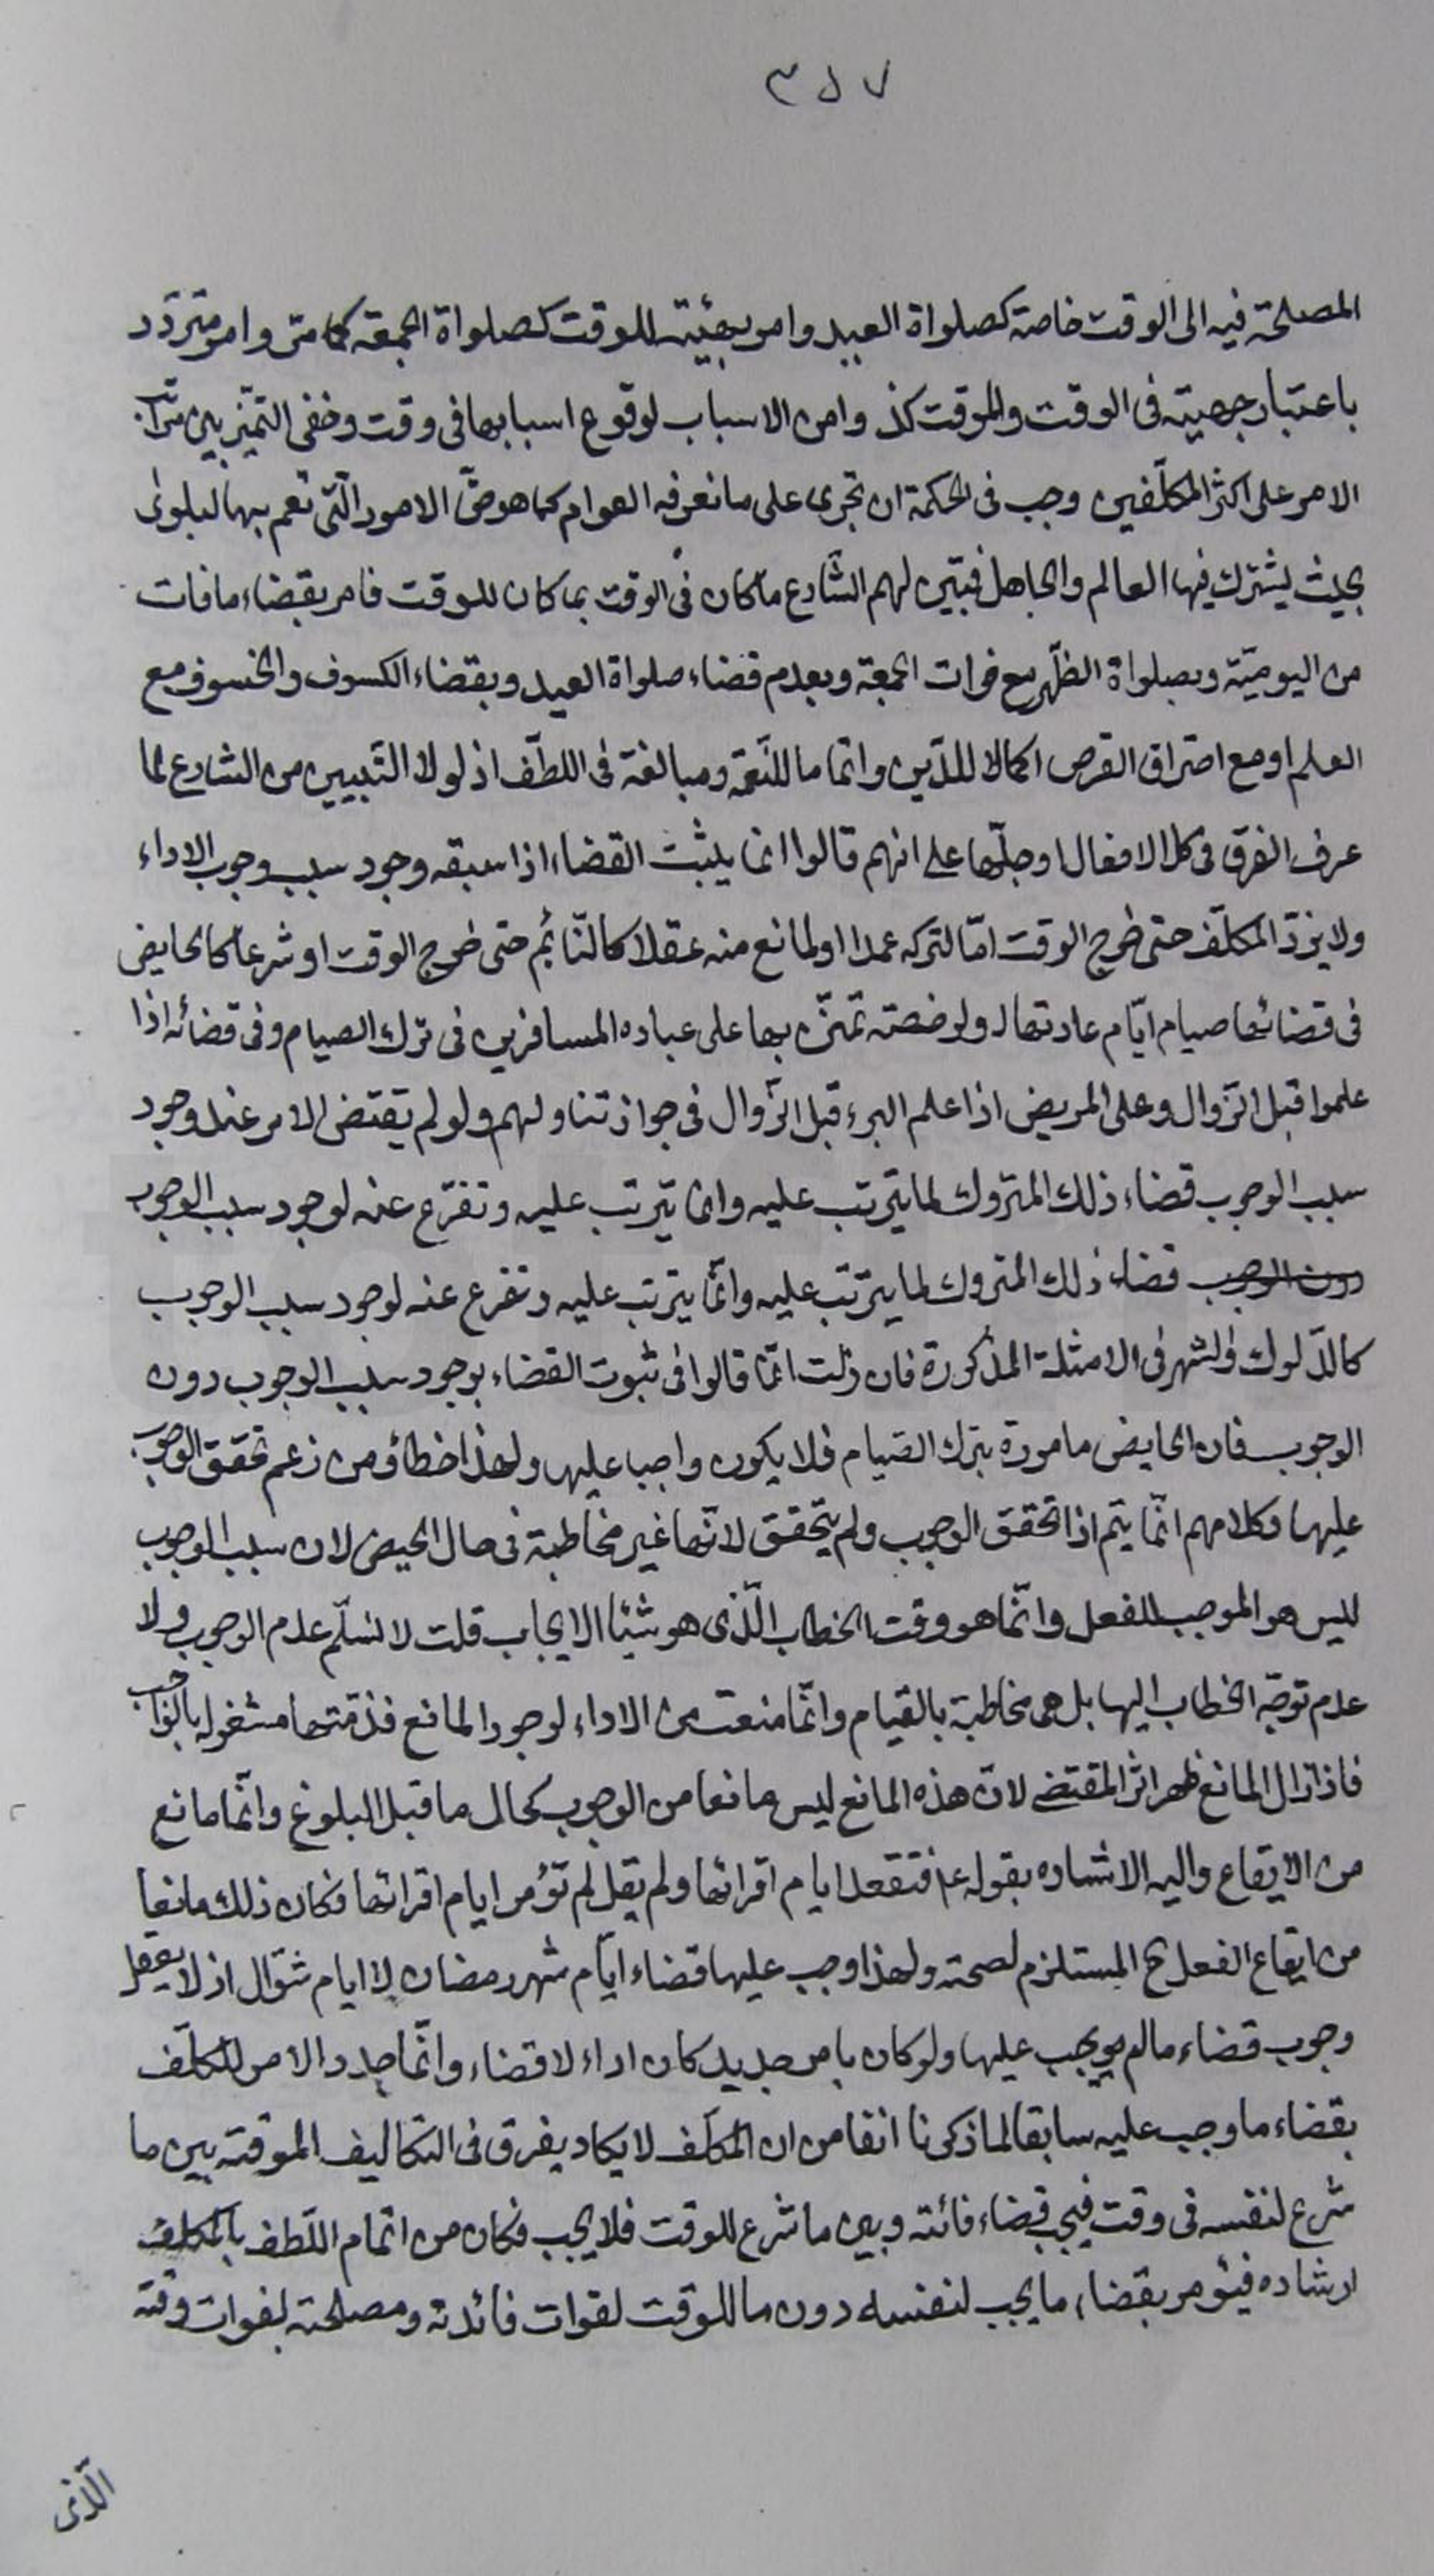 ٣٥٧
المصلحة فيه الى الوقت خاصة كصلواة العيد وامر بهيئته للوقت كصلواة الجمعة كما مر وامر متردد
باعتبار جهتيه فى الوقت وللوقت كذ وامر الاسباب لوقوع اسبابها فى وقت وخفى التميز بين مراتب
الامر على اكثر المكلّفين وجب فى الحكمة ان تجرى على ما تعرفه العوام كما هو حق الامور الّتى تعم بها البلوى
بحيث يشترك فيها العالم والجاهل فتبين لهم الشّارع ما كان فى الوقت بما كان للوقت فامر بقضاء ما فات
من اليوميّة وبصلواة الظّهر مع فوات الجمعة وبعدم قضاء صلواة العيد وبقضاء الكسوف والخسوف مع
العلم او مع احتراق القرص اكمالا للدّين واتماما للنّعمة ومبالغة فى اللطّف اذ لولا التبيين من الشارع لما
عرف الفرق فى كل الافعال اوجلّها على انهم قالوا انما يثبت القضاء اذا سبقه وجود سبب وجوب الاداء
ولا يؤدّ المكلّف حتى خرج الوقت امّا لتركه عمدا او لمانع منه عقلا كالنّائم حتى خرج الوقت او شرعا كالحايض
فى قضائها صيام ايّام عادتها ولرخصته تمنّن بها على عباده المسافرين فى ترك الصيام وفى قضائه اذا
علموا قبل الزّوال وعلى المريض اذا علم البرء قبل الزّوال فى جواز تناولهم ولو لم يقتض الامر عند وجود
سبب الوجوب قضاء ذلك المتروك لما يترتب عليه وانما يترتب عليه وتفرّع عنه لوجود سبب الوجوب
دون الوجوب قضاء ذلك المتروك لما يترتّب عليه وانّما يترتب عليه وتفرع عنه لوجود سبب الوجوب
كالدّلوك والشهر فى الامثلة المذكورة فان قلت انّما قالوا فى ثبوت القضاء بوجود سبب الوجوب دون
الوجوب فان الحايض مامورة بترك الصّيام فلا يكون واجبا عليها ولهذا اخطاؤ من زعم تحقق الوجوب
عليها وكلامهم انّما يتم اذا تحقق الوجوب ولم يتحقق لانّها غير مخاطبة فى حال الحيض لان سبب الوجوب
ليس هو الموجب للفعل وانّما هو وقت الخطاب الّذى هو شيئا الايجاب قلت لا نسلّم عدم الوجوب ولا
عدم توجّه الخطاب اليها بل هى مخاطبة بالقيام وانّما منعت من الاداء لوجود المانع فذمّتها مشغولة بالواجب
فاذا زال المانع ظهر اثر المقتضى لانّ هذه المانع ليس مانعا من الوجوب كحال ما قبل البلوغ وانّما مانع
من الايقاع واليه الاشاره بقوله ع فتقعد ايام اقرائها ولم يقل لم تؤمر ايام اقرائها فكان ذلك مانعا
من ايقاع الفعل ح المستلزم لصحته ولهذا وجب عليها قضاء ايّام شهر رمضان لا ايام شوّال اذ لا يعقل
وجوب قضاء مالم يوجب عليها ولو كان بامر جديد كان اداء لا قضاء وانّما جدد الامر للمكلّف
بقضاء ما وجب عليه سابقا لما ذكرنا انفا من ان المكلّف لا يكاد يفرق فى التكاليف الموقتة بين ما
شرع لنفسه فى وقت فيجب قضاء فائته وبين ما شرع للوقت فلا يجب فكان من اتمام اللّطف بالمكلف
ارشاده فيؤمر بقضاء ما يجب لنفسه دون ما للوقت لفوات فائدته ومصلحته بفوات وقته
الّذى